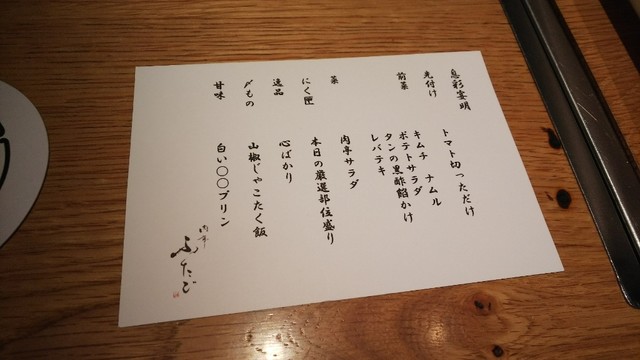 息彩宴明
先付け　トマト切っただけ
前菜　キムチ　ナムル
ポテトサラダ
タンの黒酢餡かけ
レバテキ
菜　肉亭サラダ
にく匣　本日の厳選部位盛り
逸品　心ばかり
〆もの　山椒じゃこたく飯
甘味　白い〇〇プリン
肉亭
ふたご